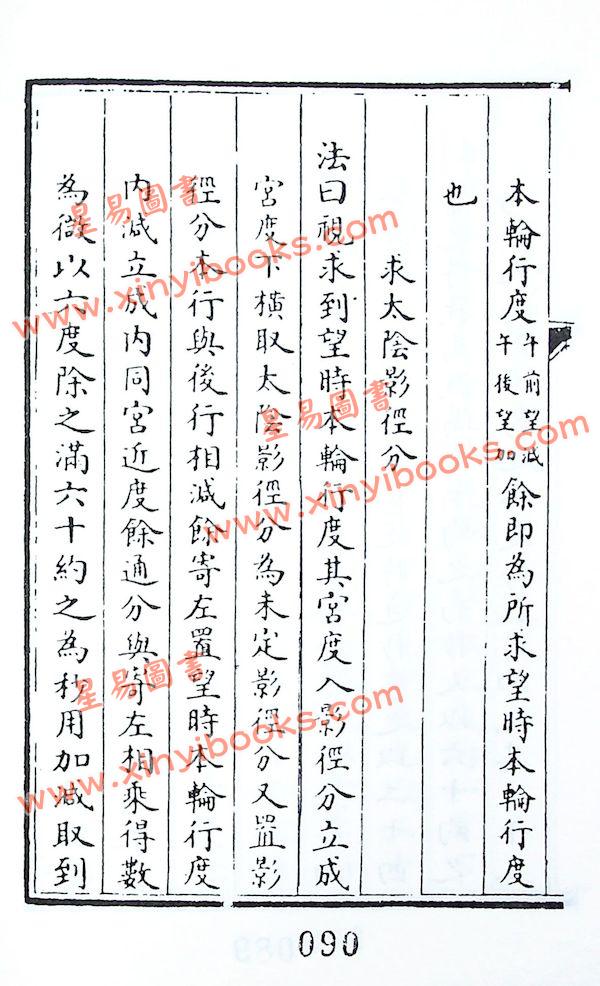 本輪行度午前望減午後望加餘即為所求望時本輪行度
也
求太陰影徑分
法曰視求到望時本輪行度其宮度入影徑分立成
宮度下橫取太陰影徑分為未定影徑分又置影
徑分本行與後行相減餘寄左置望時本輪行度
内減立成内同宮近度餘通分與寄左相乘得數
為微以六度除之滿六十約之為秒用加減取到
090
星易圖書
www.xinyibooks.com
星易圖書
www.xinyibooks.com
星易圖書
www.xinyibooks.com